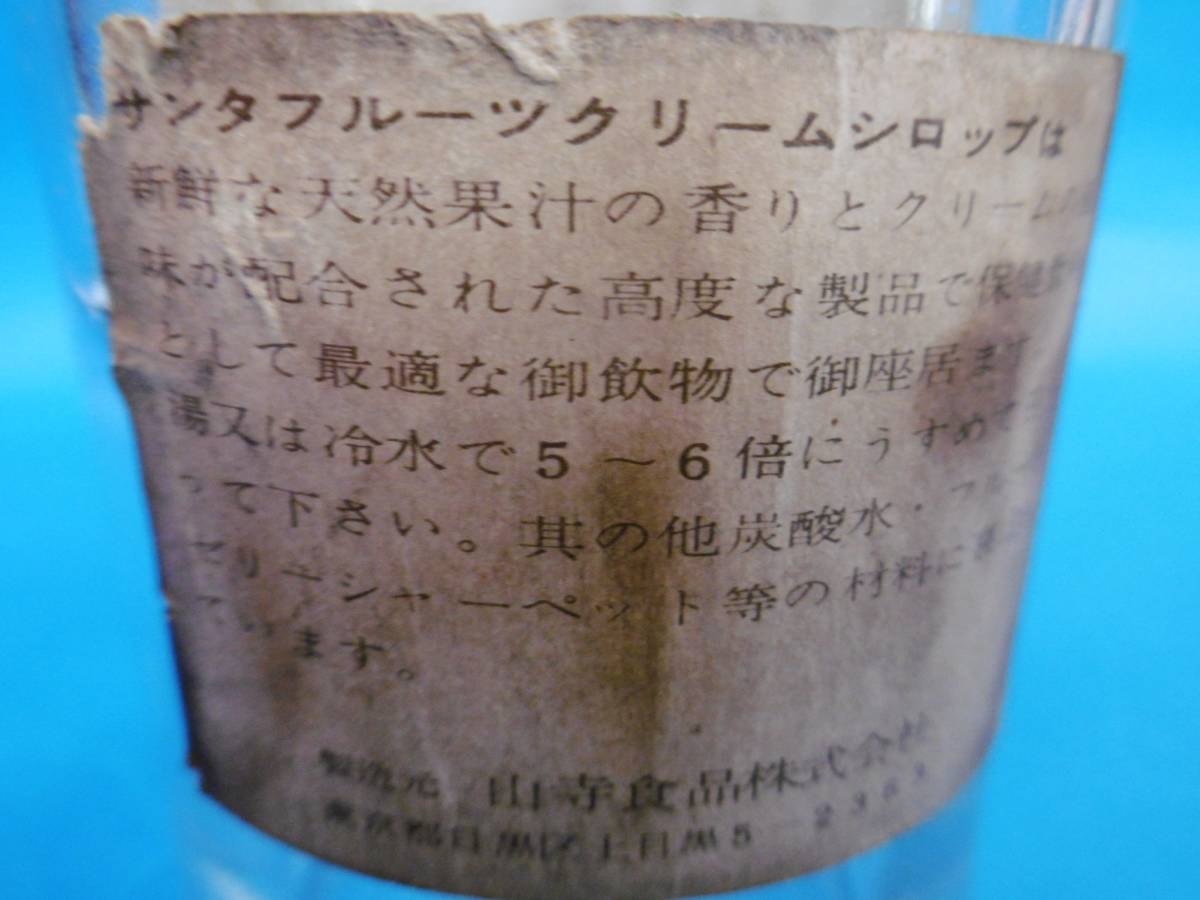 サンタフルーツクリームシロップは
新鮮な天然果汁の香りとクリームの
味が配合された高度な製品で保健
として最適な御飲物で御座居ます
湯又は冷水で5～6倍にうすめて
って下さい。其の他炭酸水・フル
ゼリーシャーベット等の材料に
ています。
製造元 山寺食品株式会社
東京都目黒区上目黒5-2361